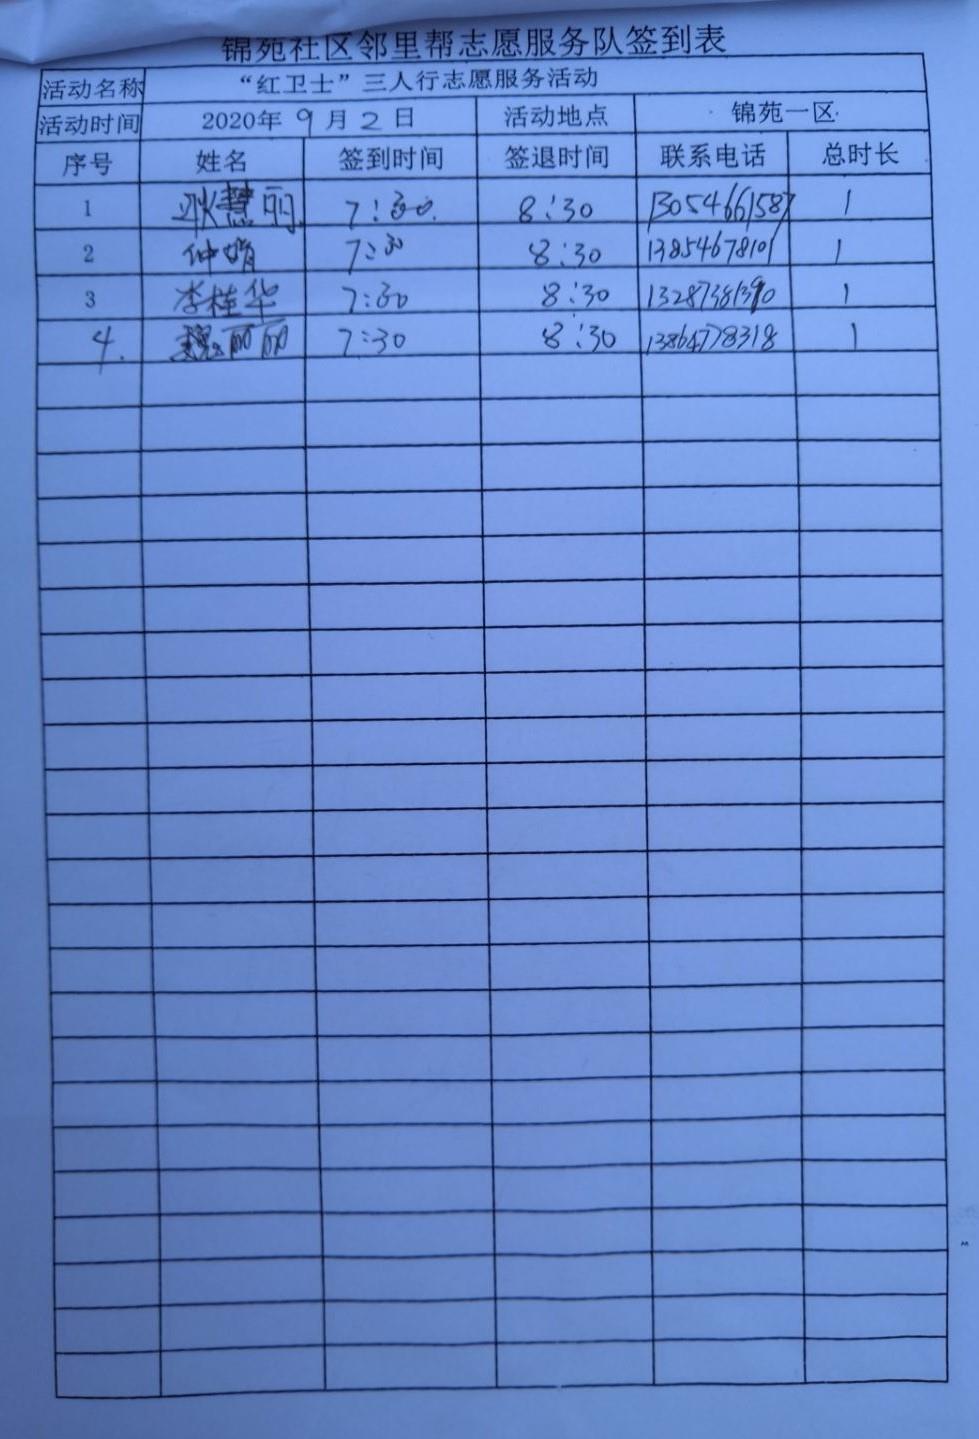 锦苑社区邻里帮志愿服务队签到表
活动名称 “红卫士”三人行志愿服务活动
活动时间 2020年 9 月 2 日 活动地点 锦苑一区
序号 姓名 签到时间 签退时间 联系电话 总时长
1 耿慧丽 7:30 8:30 13054661587 1
2 仲娟 7:30 8:30 13854678101 1
3 李桂华 7:30 8:30 1
4. 魏丽丽 7:30 8:30 13864778318 1